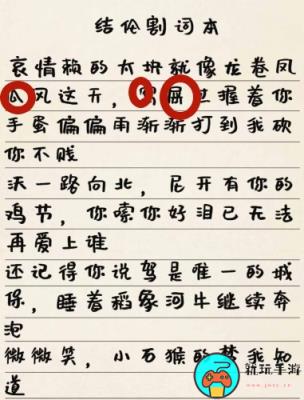 结伦割词本
哀情赖的太块就像龙卷凤
瓜风这亓，过握着你
手蛋偏偏雨渐渐打到我砍
你不贱
沃一路向北，尼开有你的
鸡节，你嗦你好泪已无法
再爱上谁
还记得你说驾是唯一的城
保，睡着稻象河牛继续奔
泡
微微笑，小石猴的梦我知
道
就玩手游